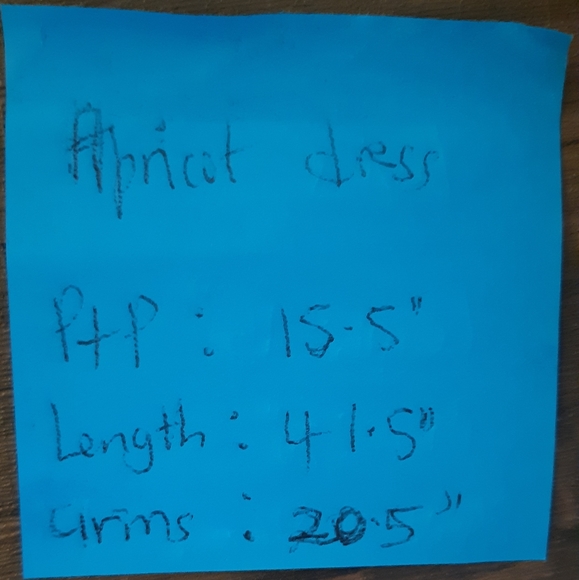 Apricot dress
PtP : 15.5"
Length : 41.5"
arms : 20.5"